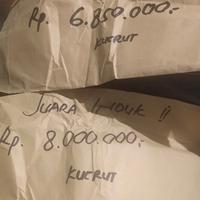 Rp. 6.850.000:-
KUCRUT
JUARA 1 HOUK !!
Rp. 8.000.000:-
KUCRUT